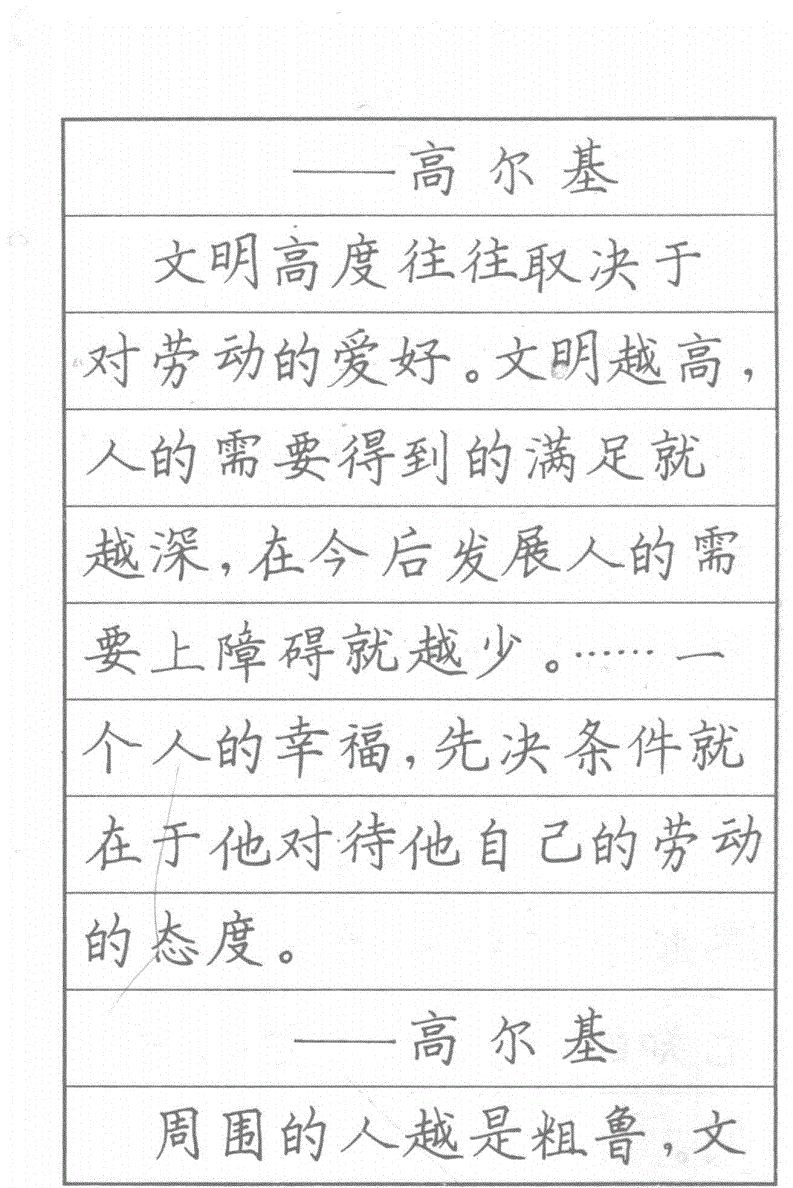 ——高尔基
文明高度往往取决于
对劳动的爱好。文明越高，
人的需要得到的满足就
越深，在今后发展人的需
要上障碍就越少。……一
个人的幸福，先决条件就
在于他对待他自己的劳动
的态度。
——高尔基
周围的人越是粗鲁，文